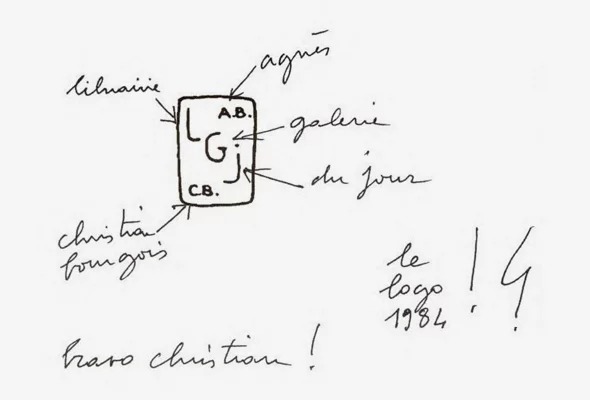 agnès
librairie
A.B.
L
galerie
G
j
du jour
C.B.
christian
bourgois
le
logo
1984
! !
bravo christian !